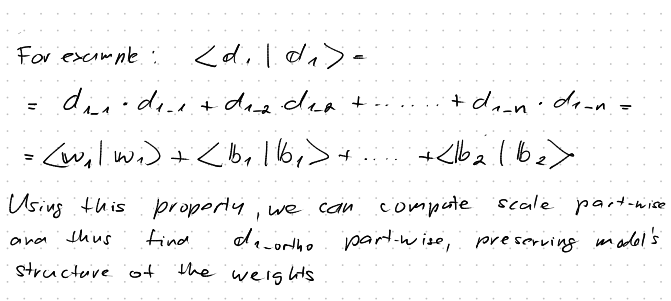 For example: <d₁|d₁> =
= d₁₋₁ · d₁₋₁ + d₁₋₂ · d₁₋₂ + ...... + d₁₋ₙ · d₁₋ₙ =
= <w₁|w₁> + <b₁|b₁> + .... + <b₂|b₂>
Using this property, we can compute scale part-wise
and thus find d₁_ortho part-wise, preserving model's
structure of the weights